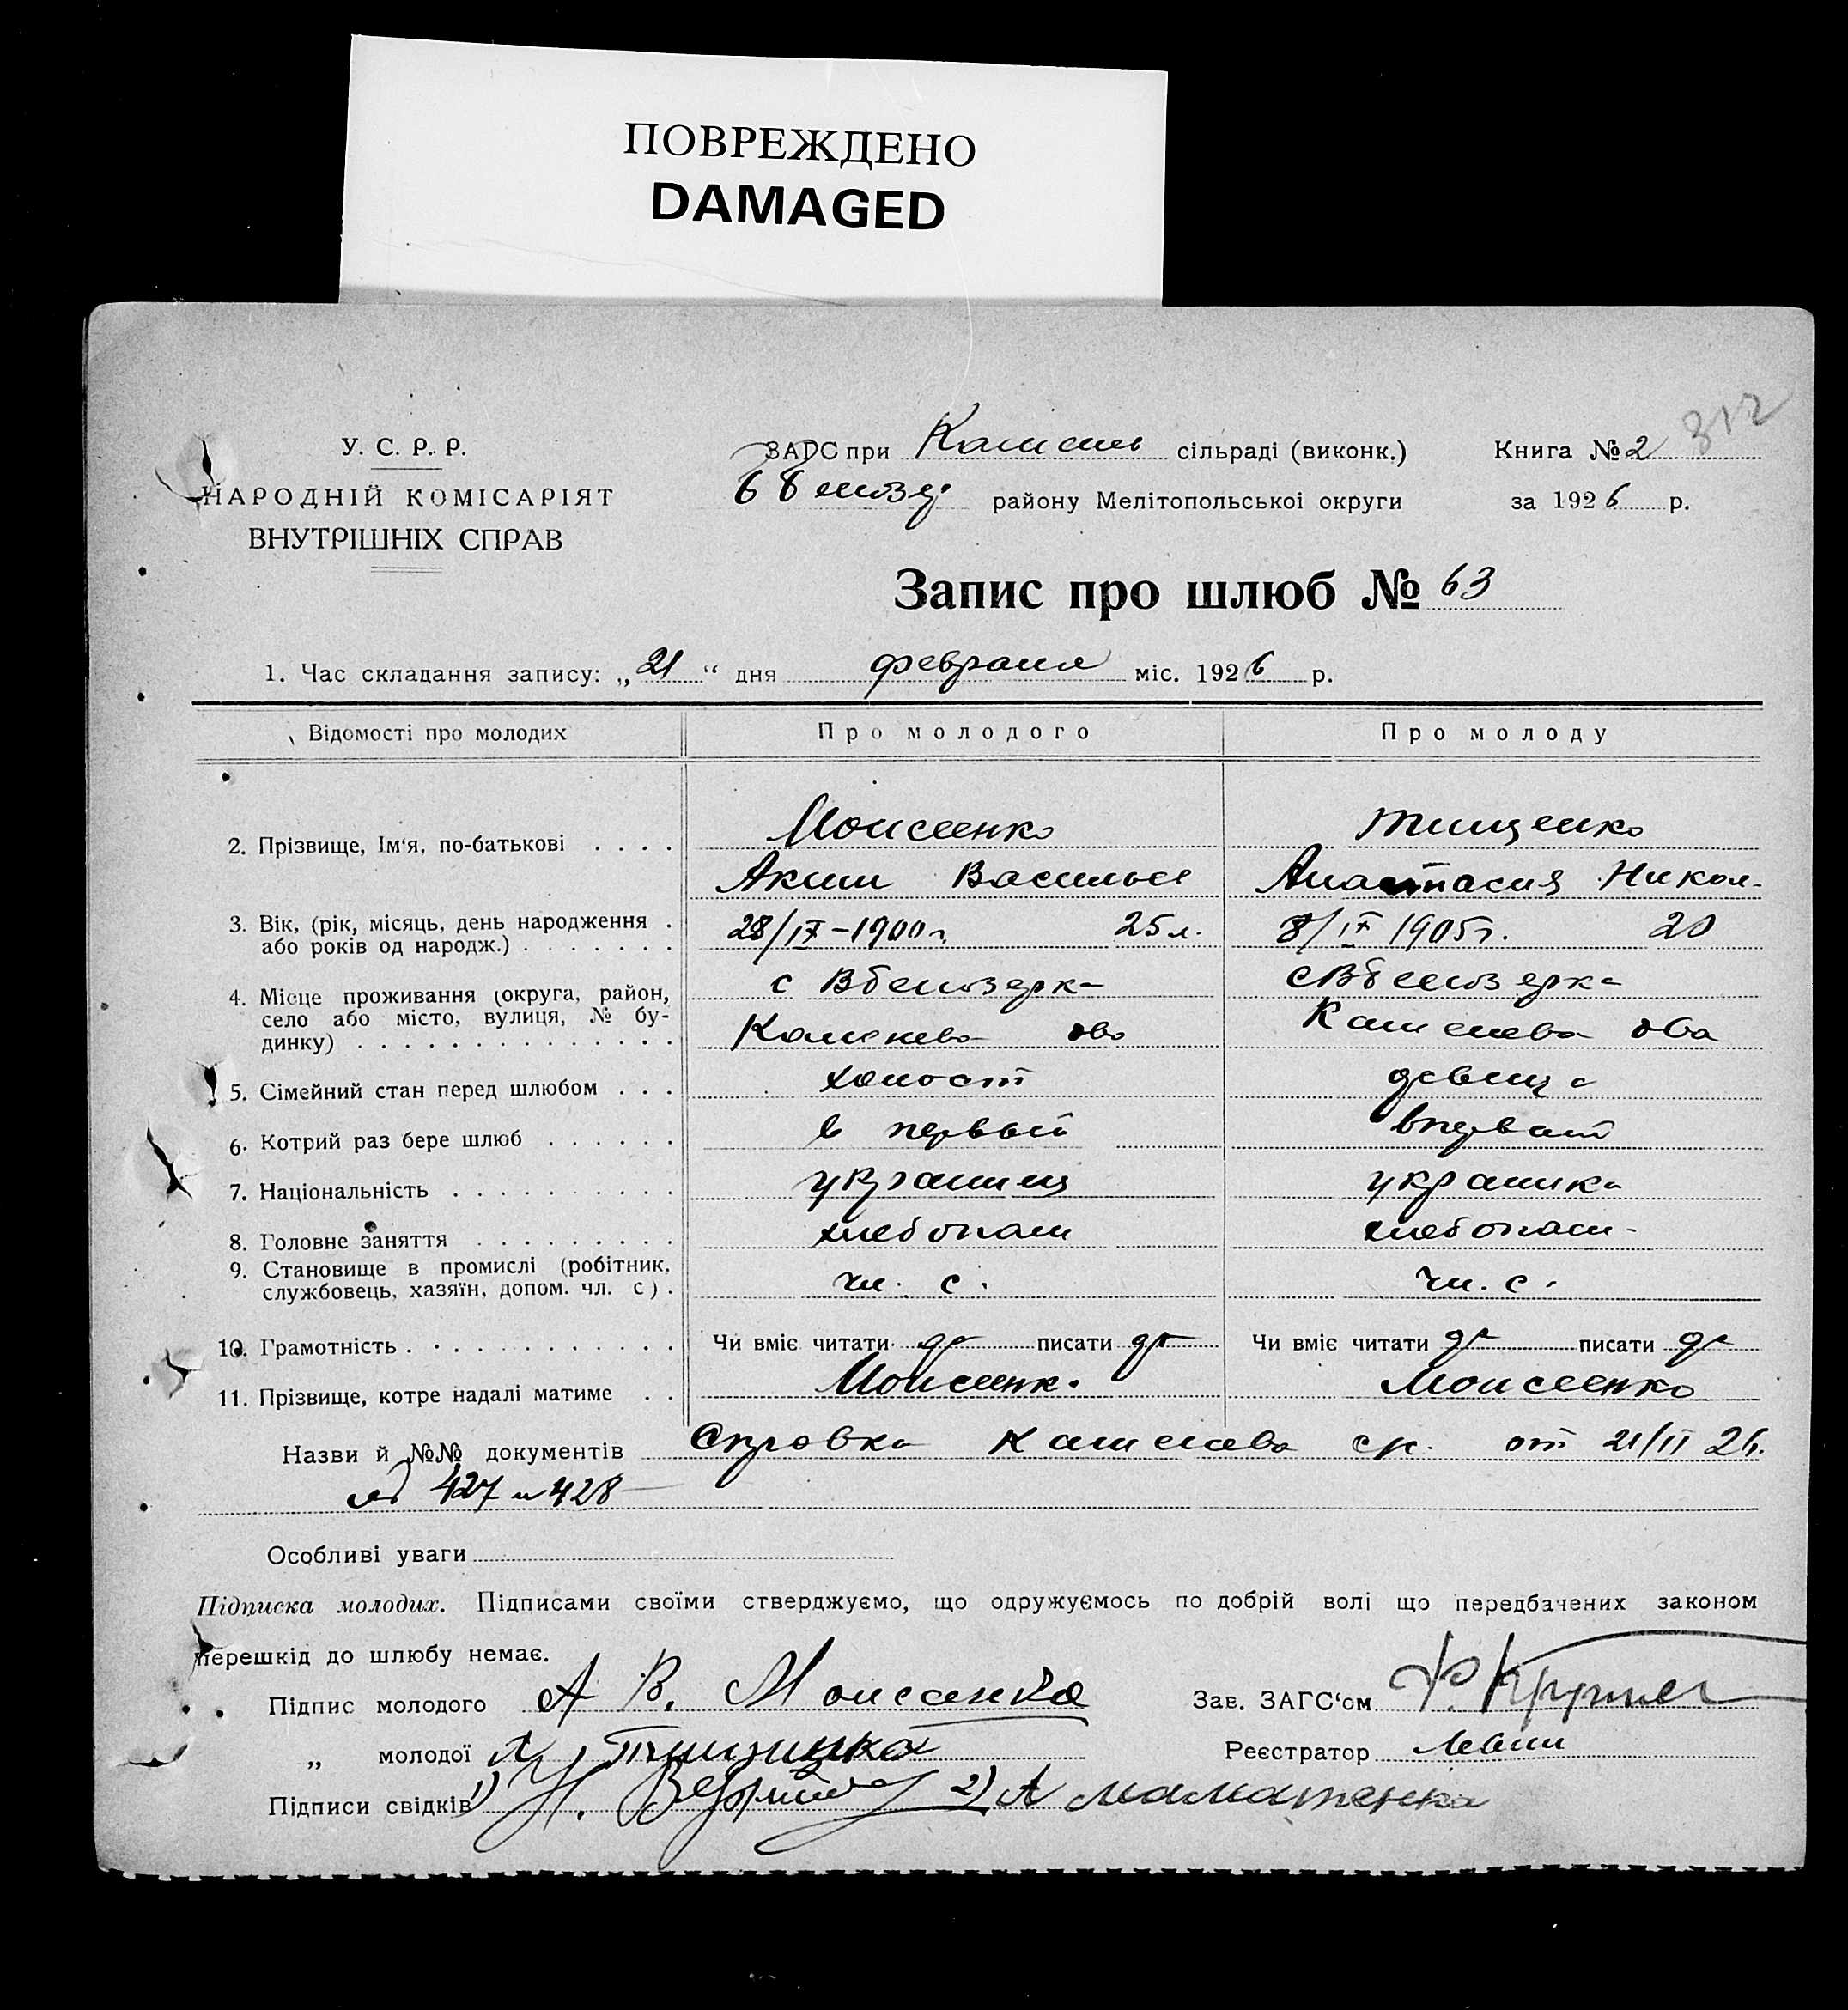 ПОВРЕЖДЕНО
DAMAGED
312
У. С. Р. Р.
НАРОДНІЙ КОМІСАРІЯТ
ВНУТРІШНІХ СПРАВ
ЗАГС при сільраді (виконк.)
району Мелітопольської округи
Книга № 2
за 1926 р.
Запис про шлюб № 63
1. Час складання запису: „21" дня февраля міс. 1926 р.
Відомості про молодих Про молодого Про молоду
2. Прізвище, Ім'я, по-батькові . . . . Моисеенко Тищенко
Аким Василье Анастасия Никол.
3. Вік, (рік, місяць, день народження . 28/IX-1900г. 25 л. 8/IX 1905г. 20
або років од народж.) . . . . . . .
4. Місце проживання (округа, район, с Вбелозерка с Вбелозерка
село або місто, вулиця, № бу-
динку) . . . . . . . . . . . . . .
5. Сімейний стан перед шлюбом . . . холост девица
6. Котрий раз бере шлюб . . . . . . в первый
7. Національність . . . . . . . . . . украинец украинка
8. Головне заняття . . . . . . . . . хлебопаш хлебопаш-
9. Становище в промислі (робітник, чл. с. чл. с.
службовець, хазяїн, допом. чл. с) .
10. Грамотність . . . . . . . . . . . . Чи вміє читати да писати да Чи вміє читати да писати да
11. Прізвище, котре надалі матиме . . Моисеенк. Моисеенко
Назви й №№ документів Справка от 21/II 26.
427 и 428
Особливі уваги
Підписка молодих. Підписами своїми стверджуємо, що одружуємось по добрій волі що передбачених законом
перешкід до шлюбу немає.
Підпис молодого А В. Моисеенко
Зав. ЗАГС'ом
„ молодої Тищинка
Реєстратор
Підписи свідків 1) Н. 2) А Маматенка